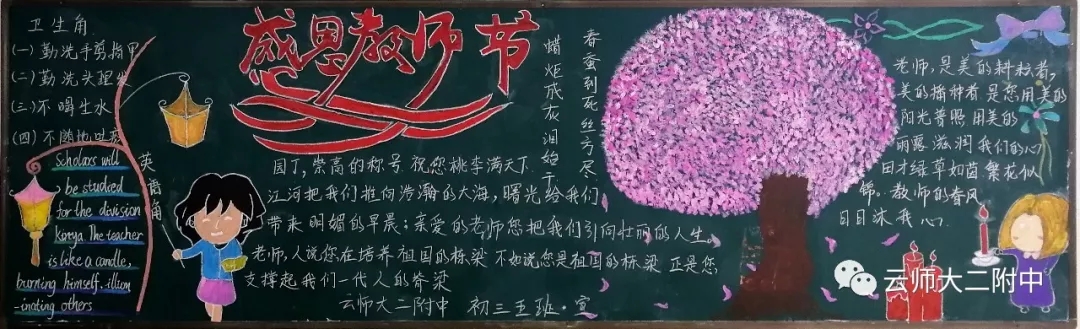 卫生角
(一)勤洗手剪指甲
(二)勤洗头理发
(三)不喝生水
(四)不随地吐痰
英语角
Scholars will
be studied
for the division
Korya. The teacher
is like a candle,
burning himself, illum
-inating others
感恩教师节
春蚕到死丝方尽
蜡炬成灰泪始干
园丁,崇高的称号 祝您桃李满天下
江河把我们推向浩瀚的大海,曙光给我们
带来明媚的早晨;亲爱的老师您把我们引向壮丽的人生。
老师,人说您在培养祖国的栋梁 不如说您是祖国的栋梁 正是您
支撑起我们一代人的脊梁
云师大二附中 初三五班·宣
老师,是美的耕耘者,
美的播种者 是您用美的
阳光普照 用美的
雨露滋润 我们的心
田才绿草如茵 繁花似
锦。教师的春风
日日沐我心
云师大二附中